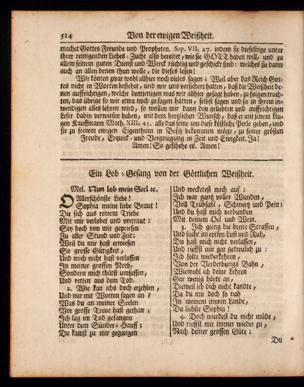 514 Von der ewigen Weißheit.
machet Gottes Freunde und Propheten. Sap. VII, 27. indem sie dieselbige unter
ihrer reinigenden Liebes-Zucht also bereitet, wie sie GOTT haben will, und zu
allem seinem guten Dienst und Werck tüchtig und geschickt sind: welches sie dann
auch an allen denen thun wolle, die dieses lesen!
Wir könten zwar wohl allhier noch vieles sagen: Weil aber das Reich Got-
tes nicht in Worten bestehet, und wir uns versichert halten, daß die Weißheit de-
nen auffrichtigen, welche dem was biß anhero gesaget worden, zu folgen trach-
ten, das übrige so wir etwa noch zu sagen hätten, selbst sagen und sie in ihrem in-
wendigen alles lehren wird, so wollen wir dann den geliebten und auffrichtigen
Leser dahin verwiesen haben, mit dem hertzlichen Wunsch, daß er mit jenem klu-
gen Kauffmann Matth. XIII, 45. alle das seine um dieß köstliche Perle geben, und
sie zu seinem ewigen Eigenthum in Besitz bekommen möge, zu seiner grösten
Freude, Erquick- und Vergnügung in Zeit und Ewigkeit. Ja!
Amen! So geschehe es. Amen!
Ein Lob-Gesang von der Göttlichen Weißheit.
Mel. Nun lob mein Seel ꝛc.
O Allerschönste Liebe!
Sophia meine liebe Braut!
Die sich aus reinem Triebe
Mit mir verlobet und vertraut:
Sey hoch von mir gepriesen
Zu aller Stund und Zeit
Weil du mir hast erwiesen
So grosse Gütigkeit,
Und mich nicht hast verlassen
In meiner grossen Noth,
Sondern mich thätst umfassen,
Und retten aus dem Tod.
2. Wie kan ich doch erzehlen,
Und nur mit Worten sagen an?
Was du an meiner Seelen
Vor grosse Treue hast gethan,
Ich lag im Tod gefangen
Unter dem Sünder-Hauff:
Du kamst zu mir gegangen
Und wecketest mich auf:
Ich war gantz voller Wunden,
Ich Trübsahl, Schmertz und Pein;
Und du hast mich verbunden
Mit deinem Oel und Wein.
3. Ich gieng die breite Strassen,
Und suchte im eitlen Lust und Ruh,
Du hast mich nicht verlassen,
Und rieffst mir gar getreulich zu:
Ich solte wiederkehren,
Von der Verderbungs Bahn,
Wiewohl ich deine Lehren
Gar wenig hörte an,
Dieweil ich dich nicht kandte,
Da du mir doch so nah
In meinem innern Lande,
Du liebste Sophia!
4. Doch wurdest du nicht müde,
Und rieffst mir immer wieder zu,
Nach deiner grossen Güte:
Du